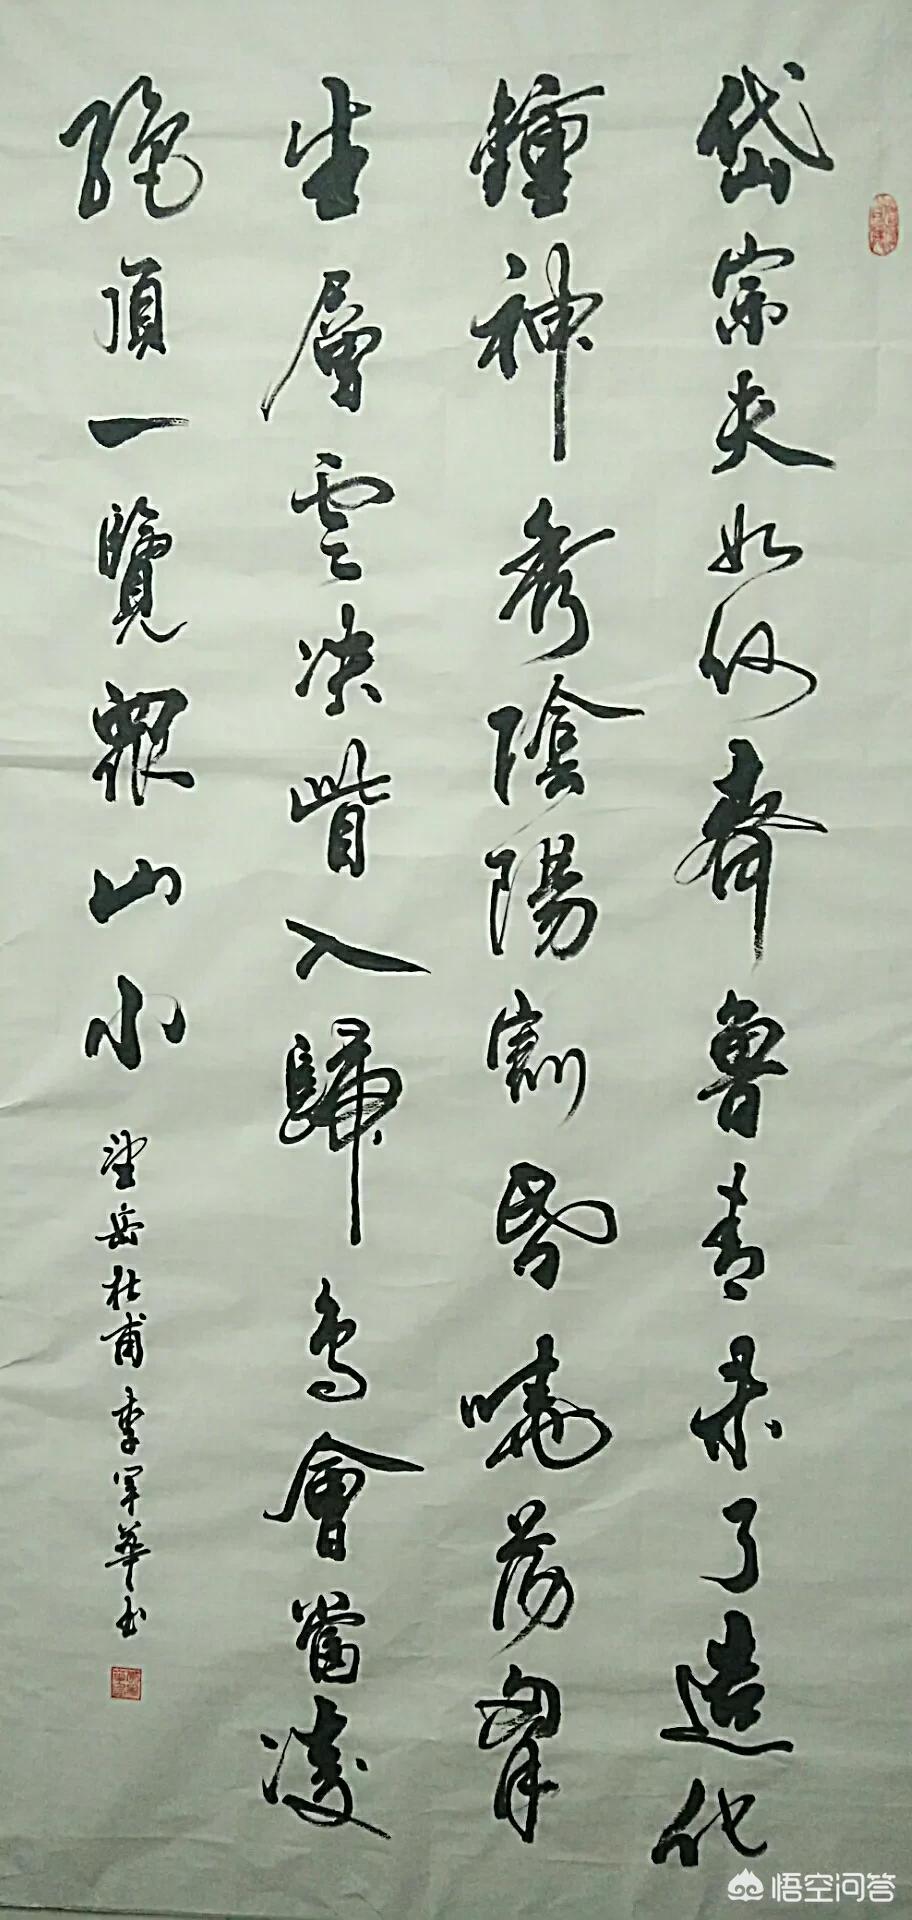 岱宗夫如何齊魯青未了造化
鍾神秀陰陽割昏曉蕩胷
生層雲决眥入歸鳥會當凌
絕頂一覽眾山小
望岳杜甫李軍華书
悟空问答